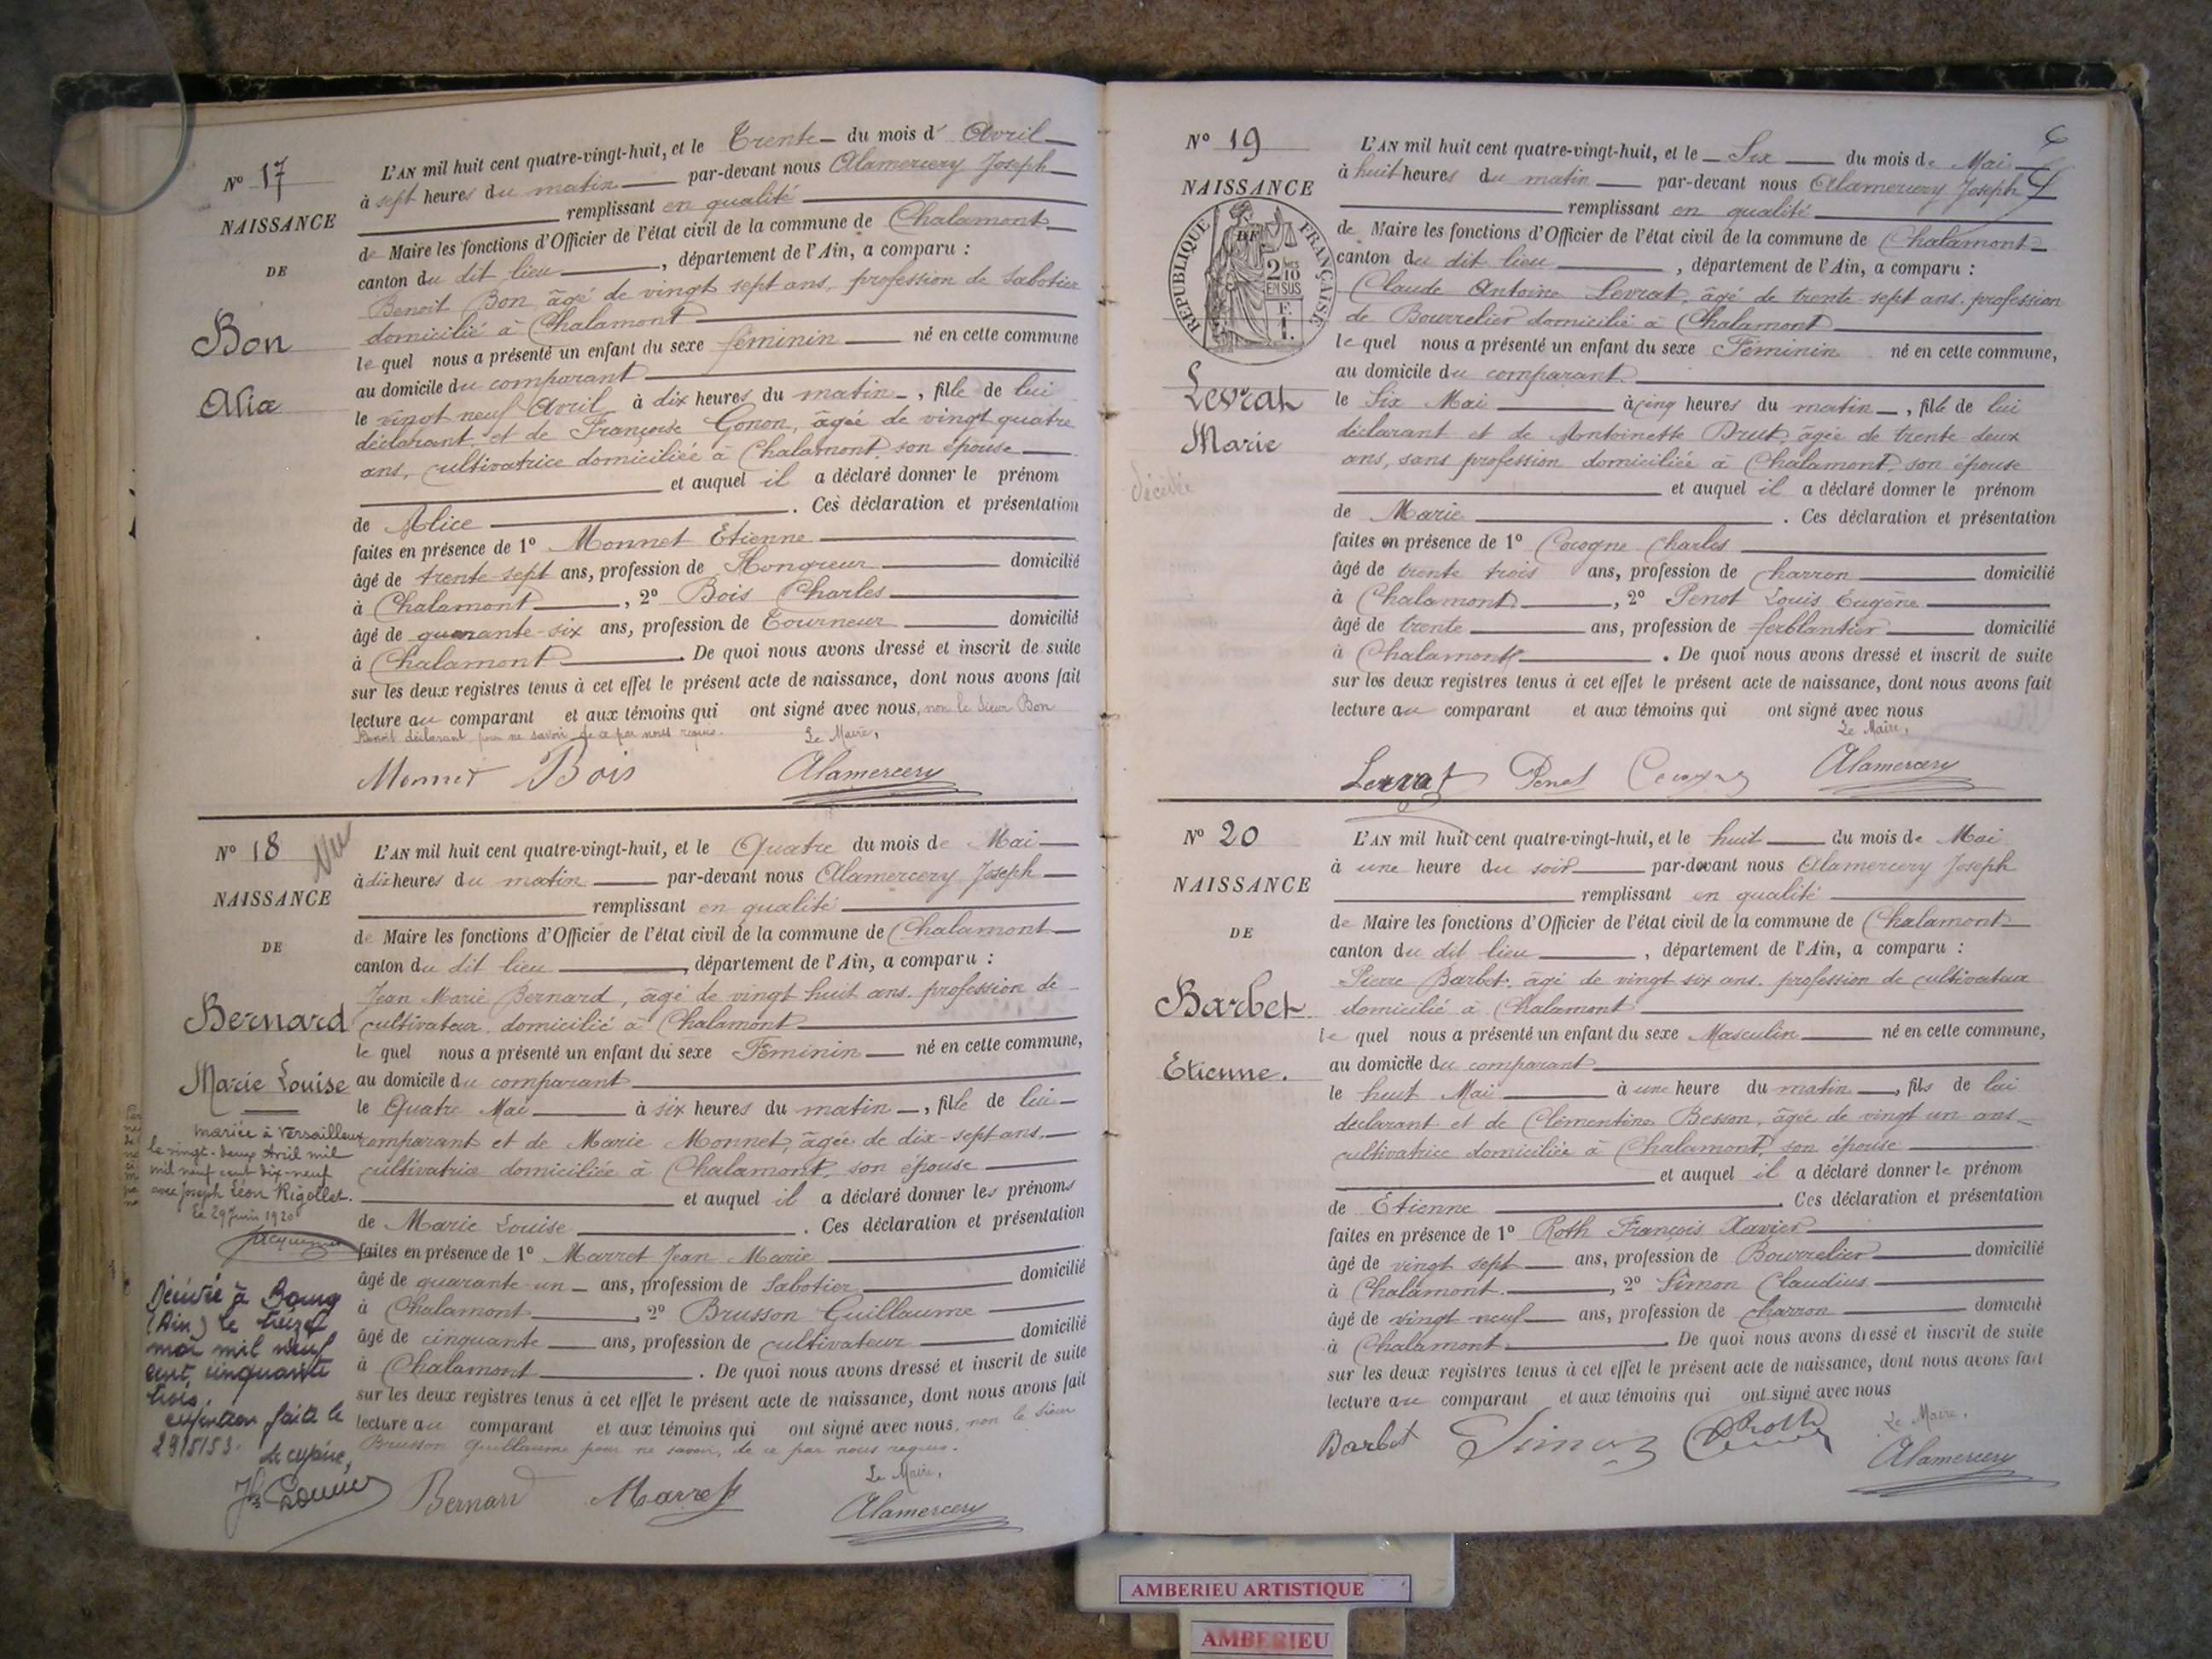 N° 17
NAISSANCE
DE
Bon
Alice
L'AN mil huit cent quatre-vingt-huit, et le Trente du mois d' Avril
à sept heures du matin par-devant nous Alamercery Joseph
remplissant en qualité
de Maire les fonctions d'Officier de l'état civil de la commune de Chalamont
canton du dit lieu, département de l'Ain, a comparu :
Benoit Bon, âgé de vingt sept ans, profession de Sabotier
domicilié à Chalamont
lequel nous a présenté un enfant du sexe féminin né en cette commune
au domicile du comparant
le vingt neuf Avril à dix heures du matin, fille de lui
déclarant et de Françoise Gonon, âgée de vingt quatre
ans, cultivatrice domiciliée à Chalamont, son épouse
et auquel il a déclaré donner le prénom
de Alice. Ces déclaration et présentation
faites en présence de 1° Monnet Etienne
âgé de trente-sept ans, profession de Hongreur domicilié
à Chalamont, 2° Bois Charles
âgé de quarante-six ans, profession de Tourneur domicilié
à Chalamont. De quoi nous avons dressé et inscrit de suite
sur les deux registres tenus à cet effet le présent acte de naissance, dont nous avons fait
lecture au comparant et aux témoins qui ont signé avec nous, non le Sieur Bon
Benoit déclarant pour ne savoir de ce par nous requis.
Le Maire,
Monnet Bois Alamercery
N° 18
Nu
NAISSANCE
DE
Bernard
Marie Louise
mariée à Versailleux
le vingt-deux Avril mil
mil neuf cent dix-neuf
avec Joseph Léon Rigollet.
Le 29 Juin 1920
Décédée à Bourg
(Ain) le treize
mai mil neuf
cent cinquante
trois.
faite le
29/5/53.
L'AN mil huit cent quatre-vingt-huit, et le Quatre du mois de Mai
à dix heures du matin par-devant nous Alamercery Joseph
remplissant en qualité
de Maire les fonctions d'Officier de l'état civil de la commune de Chalamont
canton du dit lieu, département de l'Ain, a comparu :
Jean Marie Bernard, âgé de vingt huit ans. profession de
cultivateur domicilié à Chalamont
lequel nous a présenté un enfant du sexe Féminin né en cette commune,
au domicile du comparant
le Quatre Mai à six heures du matin, fille de lui
comparant et de Marie Monnet, âgée de dix-sept ans,
cultivatrice domiciliée à Chalamont, son épouse
et auquel il a déclaré donner les prénoms
de Marie Louise. Ces déclaration et présentation
faites en présence de 1° Marret Jean Marie
âgé de quarante-un ans, profession de Sabotier domicilié
à Chalamont, 2° Brusson Guillaume
âgé de cinquante ans, profession de cultivateur domicilié
à Chalamont. De quoi nous avons dressé et inscrit de suite
sur les deux registres tenus à cet effet le présent acte de naissance, dont nous avons fait
lecture au comparant et aux témoins qui ont signé avec nous, non le Sieur
Brusson Guillaume pour ne savoir, de ce par nous requis.
Le Maire,
Bernard Marret Alamercery
N° 19
NAISSANCE
RÉPUBLIQUE FRANÇAISE
2 10mes
EN SUS
Levrat
Marie
décédée
L'AN mil huit cent quatre-vingt-huit, et le Six du mois de Mai
à huit heures du matin par-devant nous Alamercery Joseph
remplissant en qualité
de Maire les fonctions d'Officier de l'état civil de la commune de Chalamont
canton du dit lieu, département de l'Ain, a comparu :
Claude Antoine Levrat, âgé de trente-sept ans profession
de Bourrelier domicilié à Chalamont
lequel nous a présenté un enfant du sexe Féminin né en cette commune,
au domicile du comparant
le Six Mai à cinq heures du matin, fille de lui
déclarant et de Antoinette Brut, âgée de trente deux
ans, sans profession domiciliée à Chalamont, son épouse
et auquel il a déclaré donner le prénom
de Marie. Ces déclaration et présentation
faites en présence de 1° Cocogne Charles
âgé de trente trois ans, profession de charron domicilié
à Chalamont, 2° Penot Louis Eugène
âgé de trente ans, profession de ferblantier domicilié
à Chalamont. De quoi nous avons dressé et inscrit de suite
sur les deux registres tenus à cet effet le présent acte de naissance, dont nous avons fait
lecture au comparant et aux témoins qui ont signé avec nous
Le Maire,
Levrat Penot Alamercery
N° 20
NAISSANCE
DE
Barbet
Etienne.
L'AN mil huit cent quatre-vingt-huit, et le huit du mois de Mai
à une heure du soir par-devant nous Alamercery Joseph
remplissant en qualité
de Maire les fonctions d'Officier de l'état civil de la commune de Chalamont
canton du dit lieu, département de l'Ain, a comparu :
Pierre Barbet, âgé de vingt six ans. profession de cultivateur
domicilié à Chalamont
lequel nous a présenté un enfant du sexe Masculin né en cette commune,
au domicile du comparant
le huit Mai à une heure du matin, fils de lui
déclarant et de Clémentine Besson, âgée de vingt un ans
cultivatrice domiciliée à Chalamont, son épouse
et auquel il a déclaré donner le prénom
de Etienne. Ces déclaration et présentation
faites en présence de 1° Roth François Xavier
âgé de vingt sept ans, profession de Bourrelier domicilié
à Chalamont., 2° Simon Claudius
âgé de vingt neuf ans, profession de charron domicilié
à Chalamont. De quoi nous avons dressé et inscrit de suite
sur les deux registres tenus à cet effet le présent acte de naissance, dont nous avons fait
lecture au comparant et aux témoins qui ont signé avec nous
Le Maire,
Barbet Simon Roth Alamercery
AMBERIEU ARTISTIQUE
AMBERIEU